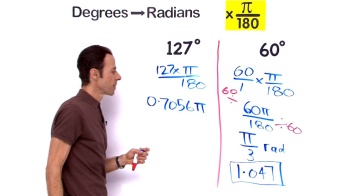 Degrees → Radians × π/180
127°
127×π/180
0.7056π
60°
60/1 × π/180
60 ÷
60π/180 ÷60
π/3 rad
1.047